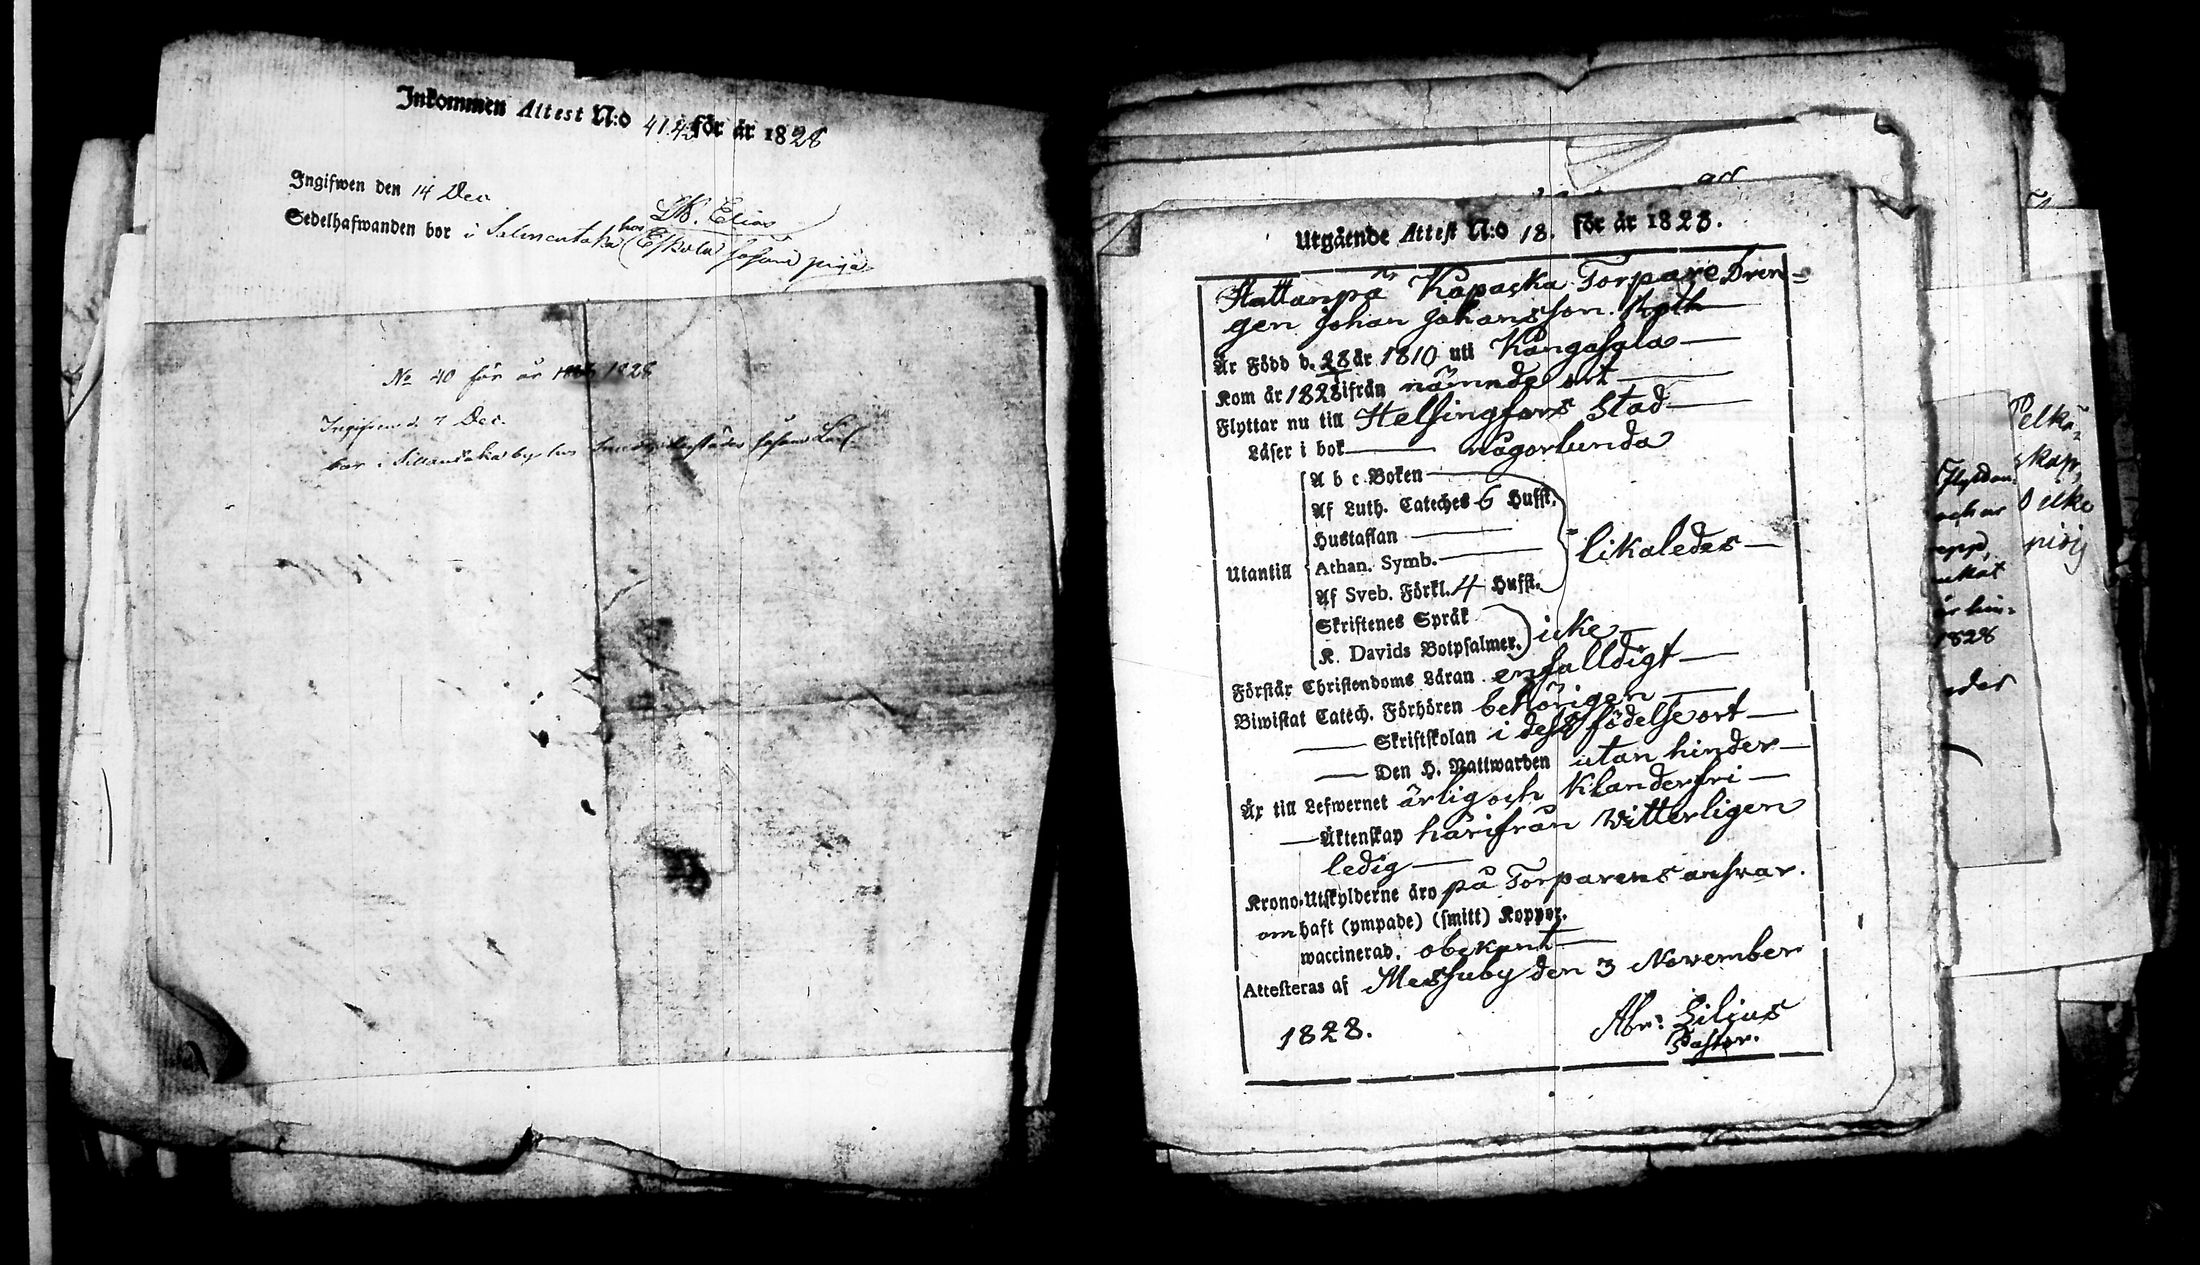 Inkommen Attest N:o 41.42 för år 1828
Ingifwen den 14 Dec
Sedelhafwanden bor i hos Elias
Eskola piga
No 40 för år 1828
Ingifven d. 7 Dec.
bor i by hos
Utgående Attest N:o 18. för år 1828.
Kapaska Torpare Dren-
gen Johan Johansson.
Är Född d. 28 år 1810 uti Kangasala
Kom år 1828 ifrån nämnde ort
Flyttar nu till Helsingfors Stad
Läser i bok någorlunda
A b c Boken
Af Luth. Cateches 6 Hufst.
Hustaflan
Utantill Athan. Symb. likaledes
Af Sveb. Förkl. 4 Hufst.
Skriftenes Språk
K. Davids Botpsalmer. icke
Förstår Christendoms Läran enfalldigt
Biwistat Catech. Förhören behörigen
Skriftskolan i dess födelseort
Den H. Nattwarden utan hinder
Är till Lefwernet ärlig och Klanderfri
Äktenskap härifrån Witterligen
ledig
Krono-Utskylderne äro på Torparens answar.
om haft (ympade) (smitt) Koppor.
waccinerad. obekant
Attesteras af Messuby den 3 November
1828.
Abr: Lilius
Pastor.
Pelkä-
skap,
1828